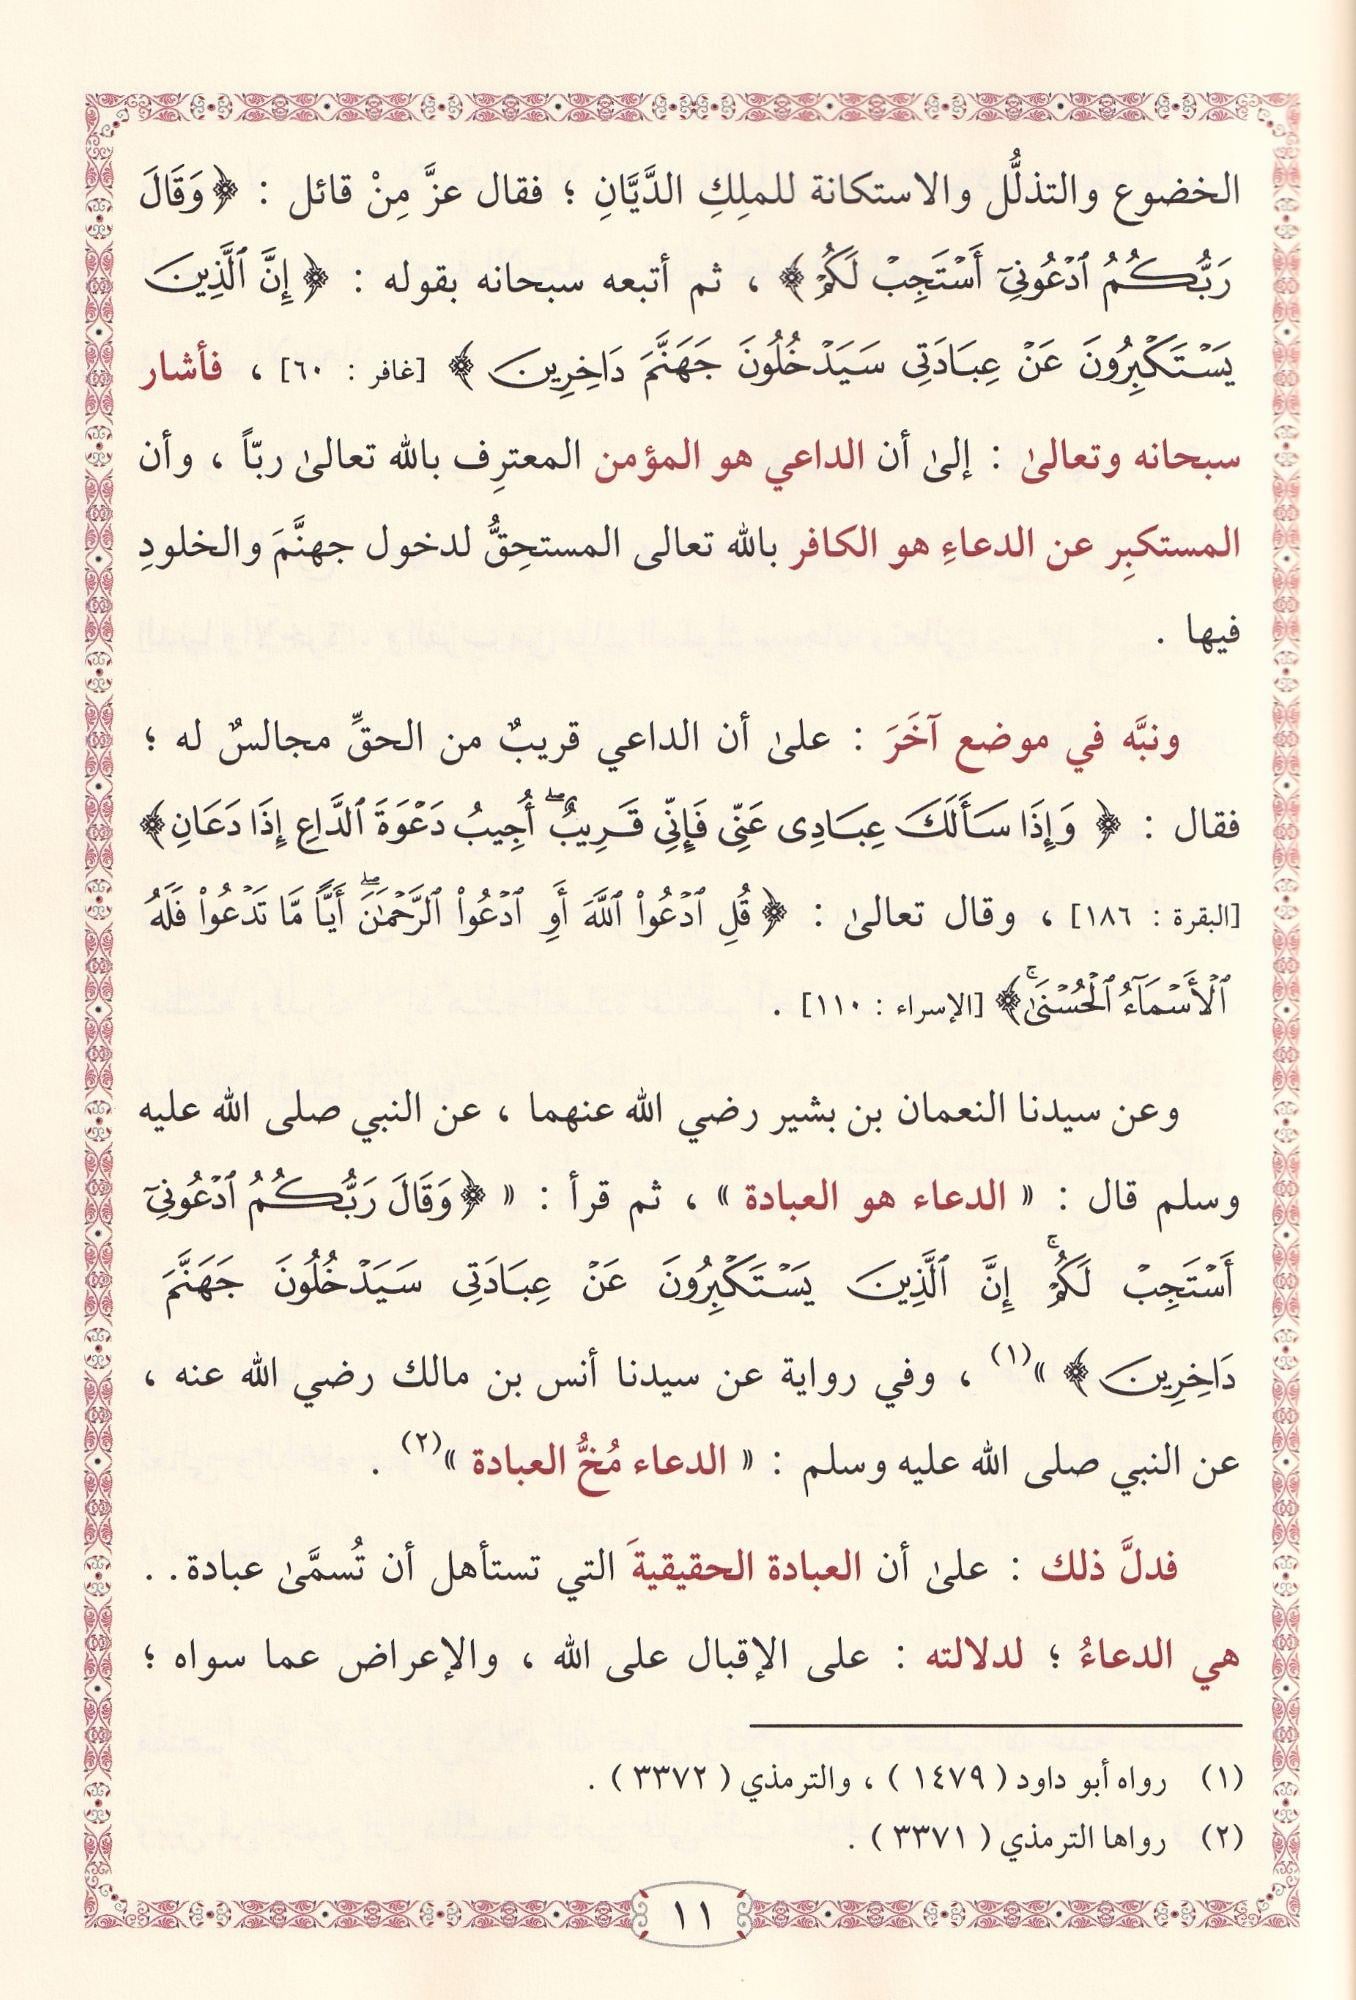 الخضوع والتذلُّل والاستكانة للملِكِ الدَّيَّانِ ؛ فقال عزَّ مِنْ قائل : ﴿ وَقَالَ
رَبُّكُمُ ٱدْعُونِىٓ أَسْتَجِبْ لَكُمْ ﴾ ، ثم أتبعه سبحانه بقوله : ﴿ إِنَّ ٱلَّذِينَ
يَسْتَكْبِرُونَ عَنْ عِبَادَتِى سَيَدْخُلُونَ جَهَنَّمَ دَاخِرِينَ ﴾ [غافر : ٦٠] ، فأشار
سبحانه وتعالىٰ : إلىٰ أن الداعي هو المؤمن المعترِف بالله تعالىٰ ربّاً ، وأن
المستكبِر عن الدعاءِ هو الكافر بالله تعالى المستحِقُّ لدخول جهنَّمَ والخلودِ
فيها .
ونبَّه في موضع آخَرَ : علىٰ أن الداعي قريبٌ من الحقِّ مجالسٌ له ؛
فقال : ﴿ وَإِذَا سَأَلَكَ عِبَادِى عَنِّى فَإِنِّى قَرِيبٌ ۖ أُجِيبُ دَعْوَةَ ٱلدَّاعِ إِذَا دَعَانِ ﴾
[البقرة : ١٨٦] ، وقال تعالىٰ : ﴿ قُلِ ٱدْعُوا۟ ٱللَّهَ أَوِ ٱدْعُوا۟ ٱلرَّحْمَٰنَ ۖ أَيًّا مَّا تَدْعُوا۟ فَلَهُ
ٱلْأَسْمَآءُ ٱلْحُسْنَىٰ ۚ ﴾ [الإسراء : ١١٠] .
وعن سيدنا النعمان بن بشير رضي الله عنهما ، عن النبي صلى الله عليه
وسلم قال : « الدعاء هو العبادة » ، ثم قرأ : « ﴿ وَقَالَ رَبُّكُمُ ٱدْعُونِىٓ
أَسْتَجِبْ لَكُمْ ۚ إِنَّ ٱلَّذِينَ يَسْتَكْبِرُونَ عَنْ عِبَادَتِى سَيَدْخُلُونَ جَهَنَّمَ
دَاخِرِينَ ﴾ »(١) ، وفي رواية عن سيدنا أنس بن مالك رضي الله عنه ،
عن النبي صلى الله عليه وسلم : « الدعاء مُخُّ العبادة »(٢) .
فدلَّ ذلك : علىٰ أن العبادة الحقيقيةَ التي تستأهل أن تُسمَّىٰ عبادة. .
هي الدعاءُ ؛ لدلالته : على الإقبال على الله ، والإعراض عما سواه ؛
(١) رواه أبو داود ( ١٤٧٩ ) ، والترمذي ( ٣٣٧٢ ) .
(٢) رواها الترمذي ( ٣٣٧١ ) .
١١